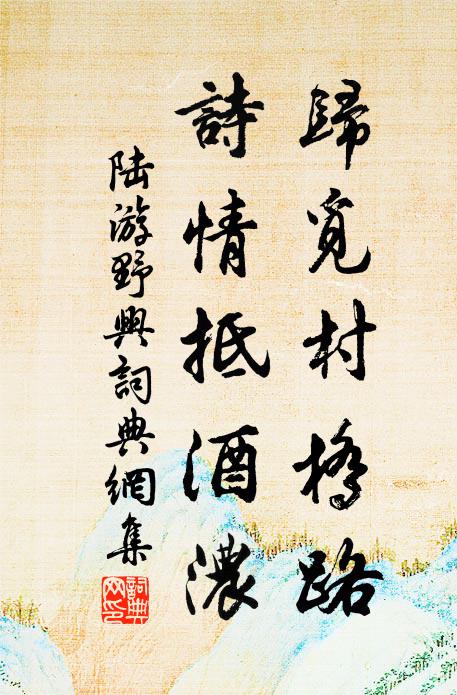 歸覓村橋路
詩情抵酒濃
陆游野興詞典網集
詞典